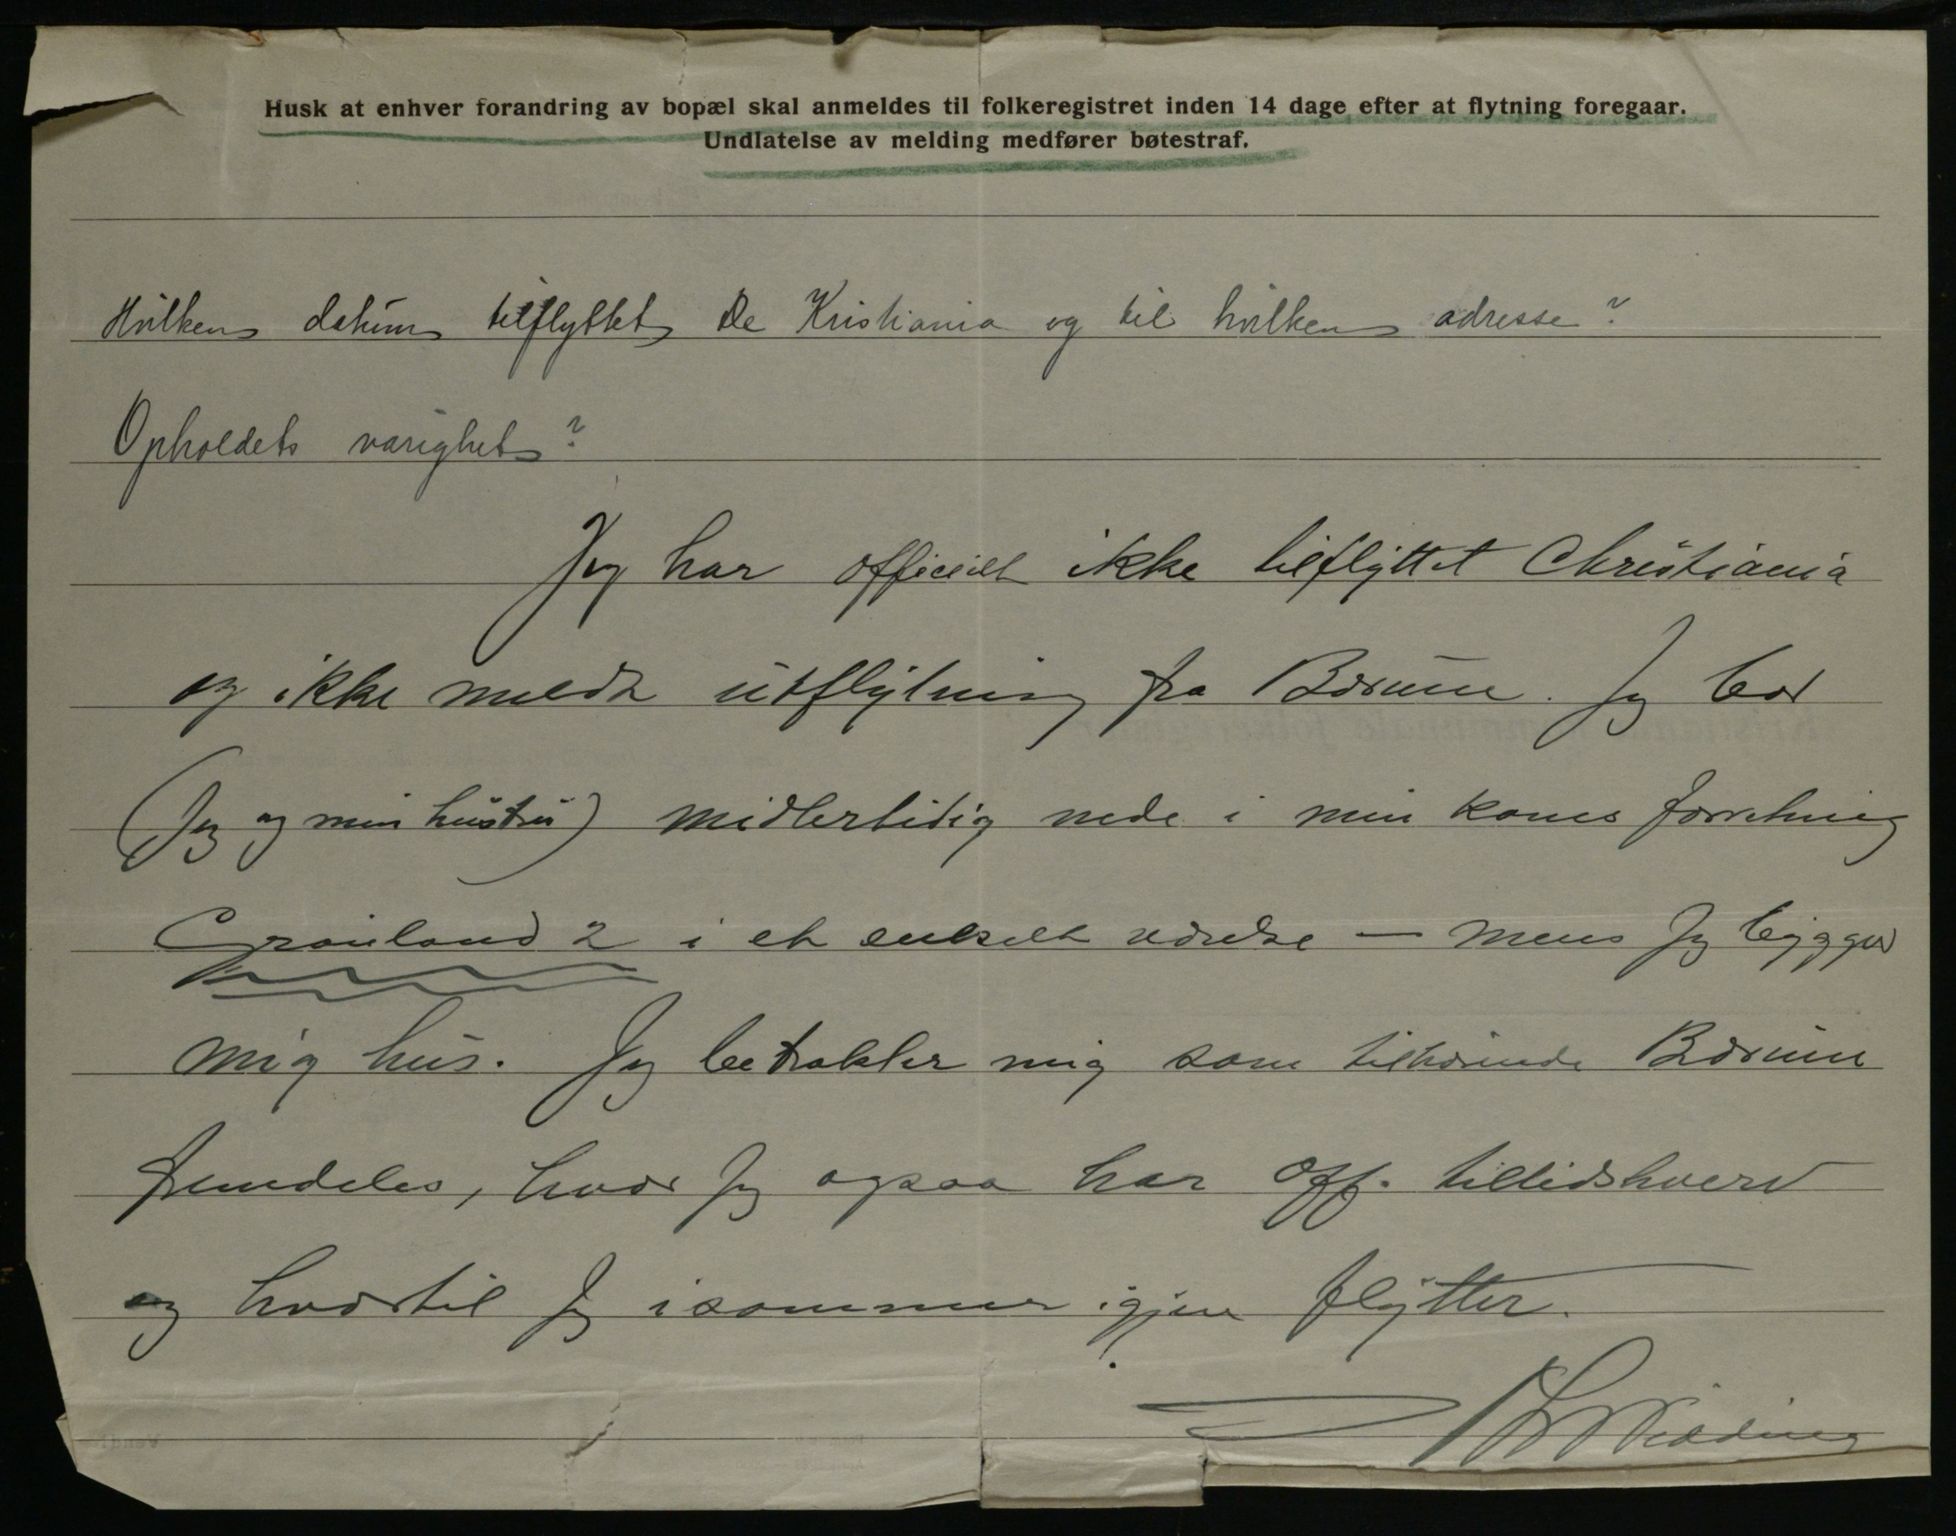 Husk at enhver forandring av bopæl skal anmeldes til folkeregistret inden 14 dage efter at flytning foregaar.
Undlatelse av melding medfører bøtestraf.
Hvilken datum tilflyttet De Kristiania og til hvilken adresse?
Opholdets varighet?
Jeg har officielt ikke tilflyttet Christiania
og ikke meldt utflytning fra Bærum. Jeg bor
(Jeg og min hustru) midlertidig nede i min kones forretning
Grønland 2 i et enkelt værelse — mens Jeg bygger
mig hus. Jeg betrakter mig som tilhørende Bærum
fremdeles, hvor Jeg ogsaa har off. tillidshverv
og hvortil Jeg i sommer igjen flytter.